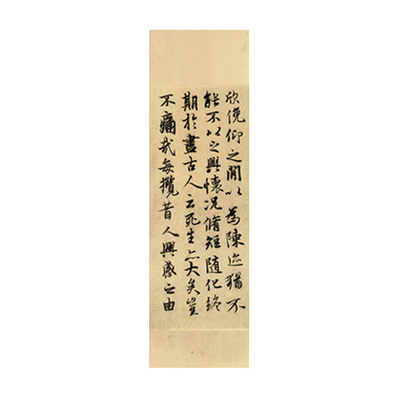 欣俛仰之閒以為陳迹猶不
能不以之興懷況脩短隨化終
期於盡古人云死生亦大矣豈
不痛哉每攬昔人興感之由